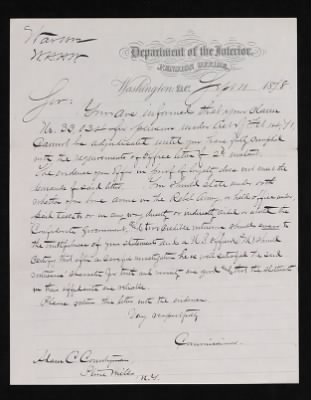 Department of the Interior,
PENSION OFFICE,
Washington, D.C. 1878
Sir:
You are informed that your claim
No. 33,934 for pension under Act of Feb 14/71
cannot be adjudicated until you have fully complied
with the requirements of office letter of 2d instant.
The evidence you offer in proof of loyalty does not meet the
demands of said letter. You should state under oath
whether you bore arms in the Rebel Army, or held office under
said or in any way directly or indirectly aided or the
Confederate Government, & two credible witnesses should swear to
the of your statement and a U.S. official should
certify that after a careful investigation he is well satisfied the said
witnesses' character for truth and are good & that the statements
in their affidavits are reliable.
Please return this letter with the evidence.
Very respectfully
Commissioner.
Adam C Countryman
Mills
N.Y.